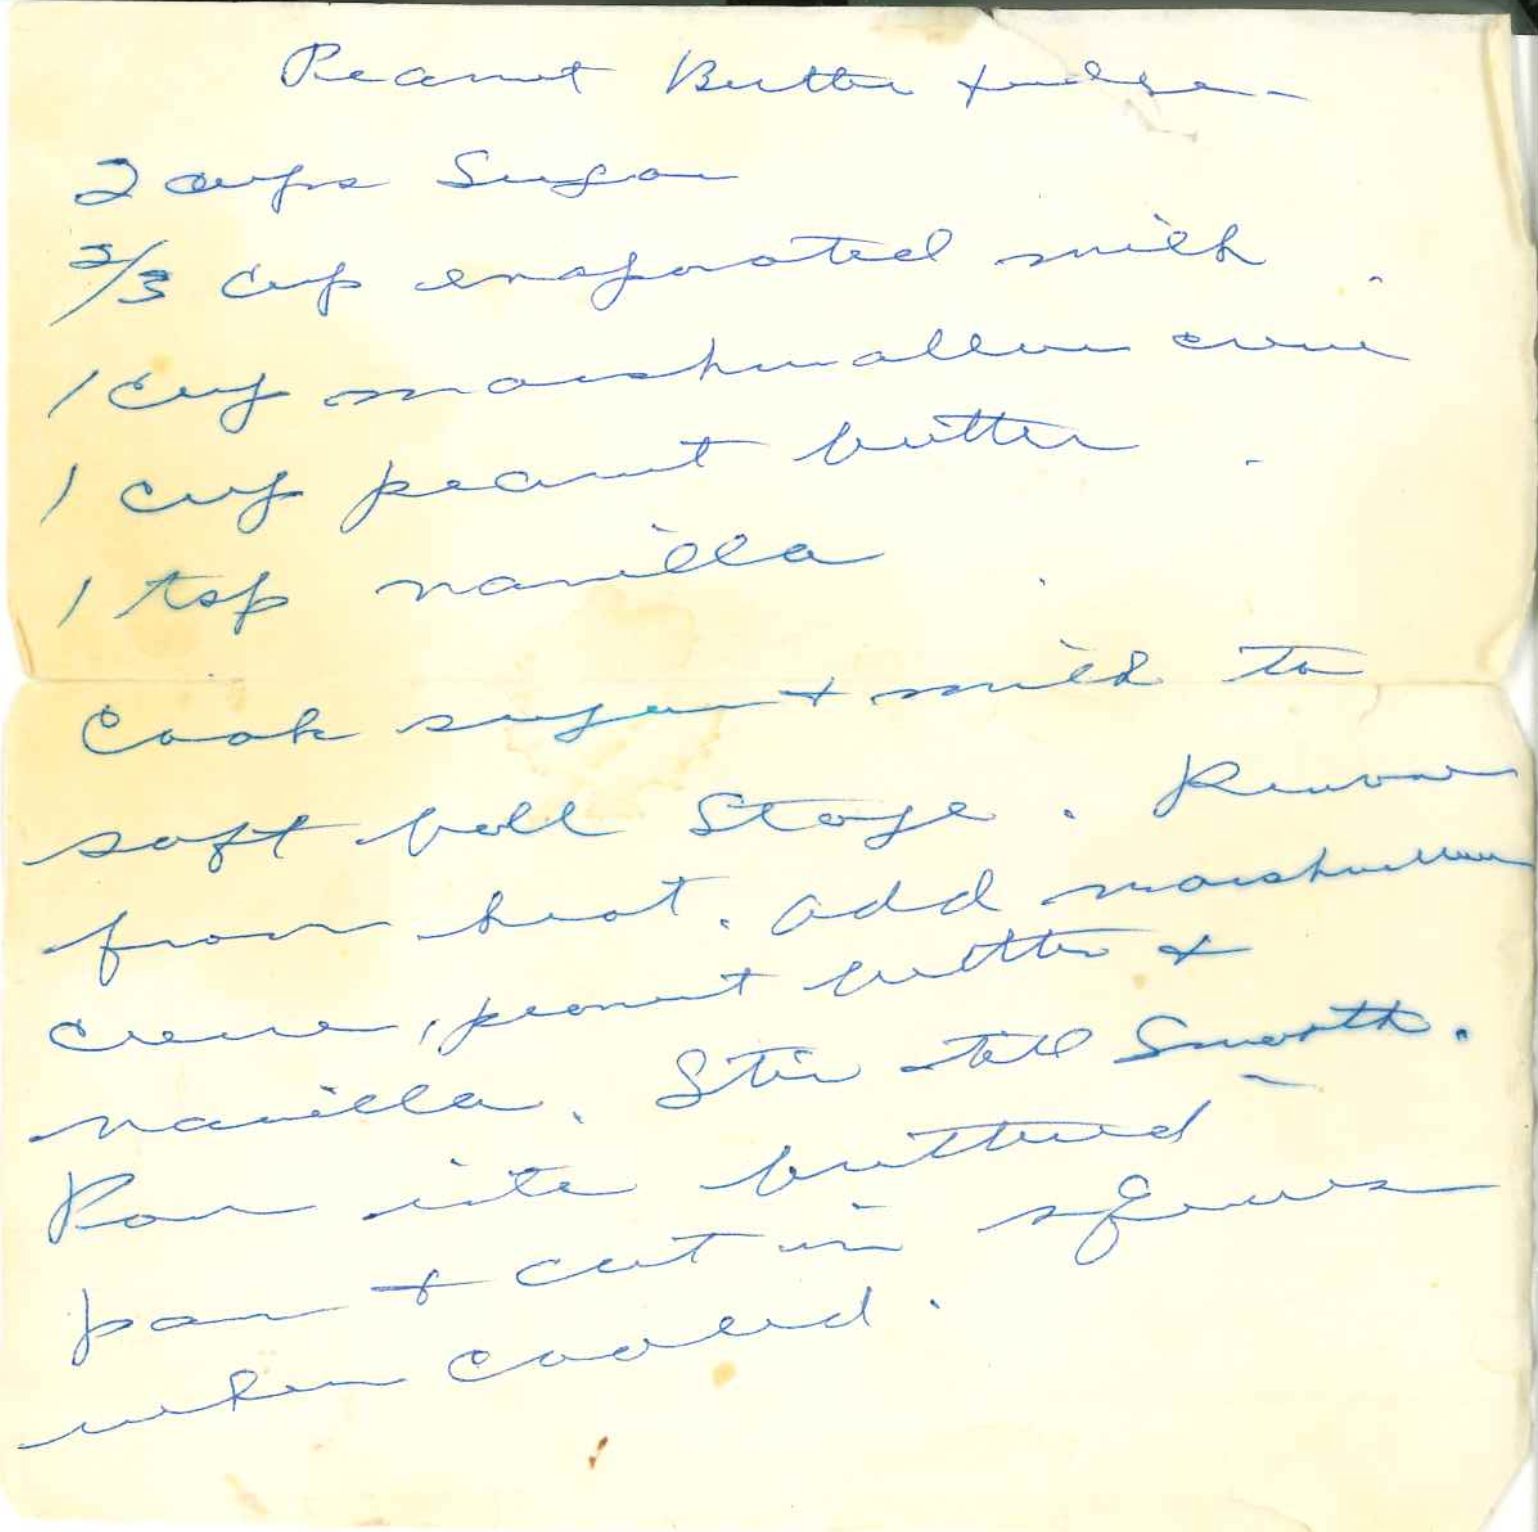 Peanut Butter Fudge
2 cups Sugar
2/3 cup evaporated milk
1 cup marshmallow creme
1 cup peanut butter
1 tsp vanilla
Cook sugar + milk to
soft ball Stage. Remove
from heat. Add marshmallow
creme, peanut butter +
vanilla. Stir till Smooth.
Pour into buttered
pan + cut in squares
when cooled.